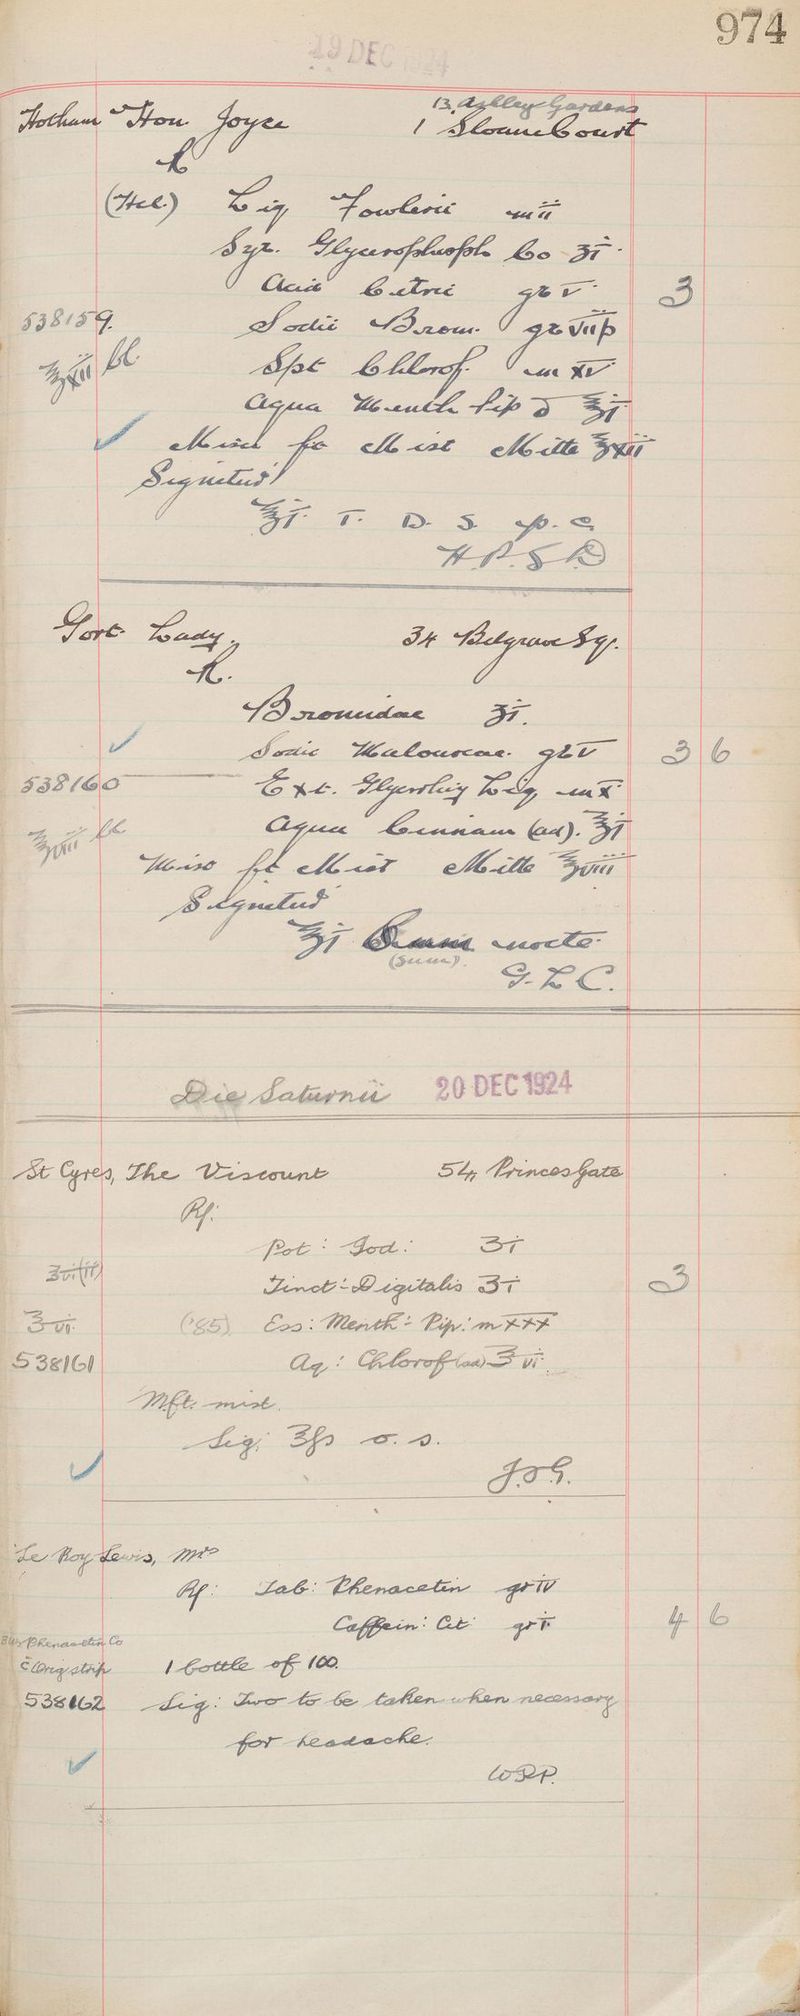 974
19 DEC 1924
13, Ashley Gardens
Hotham Hon Joyce 1 Sloane Court
R
(Hcl.) Liq Fowlerii m ii
Syr. Glycerophosph Co ʒi
Acid Citric gr v 3
538159. Sodii Brom. gr viiβ
℥xii bl. Spt Chlorof. m xv
Aqua Menth Pip ad ℥i
Misce ft Mist Mitte ℥xii
Signetur
℥i T. D. S. p.c.
H.P.
Gort Lady. 34 Belgrave Sq.
R.
Bromidae ʒi.
Sodii gr v 3 6
538160 Ext. Glycerrhiz Liq m x
℥viii bl Aqua Cinnam (ad). ℥i
Misc ft Mist Mitte ℥viii
Signetur
℥i nocte
(sum).
G. L C.
Die Saturnii 20 DEC 1924
St Cyres, The Viscount 54, Princes Gate
Rf:
Pot: Iod: ʒi
ʒvi(ii) Tinct: Digitalis ʒi 3
℥vi. ('85) Ess: Menth: Pip: m xxx
538161 Aq: Chlorof (ad) ℥vi
Mft. mist.
Sig: ℥ſs o. s.
J.S.G.
Le Roy Lewis, Mrs
Rf: Tab: Phenacetin gr iv
Caffein: Cit gr i 4 6
Phenacetin Co
c̄ Orig strip 1 bottle of 100.
538162 Sig: Two to be taken when necessary
for headache.
WRP.